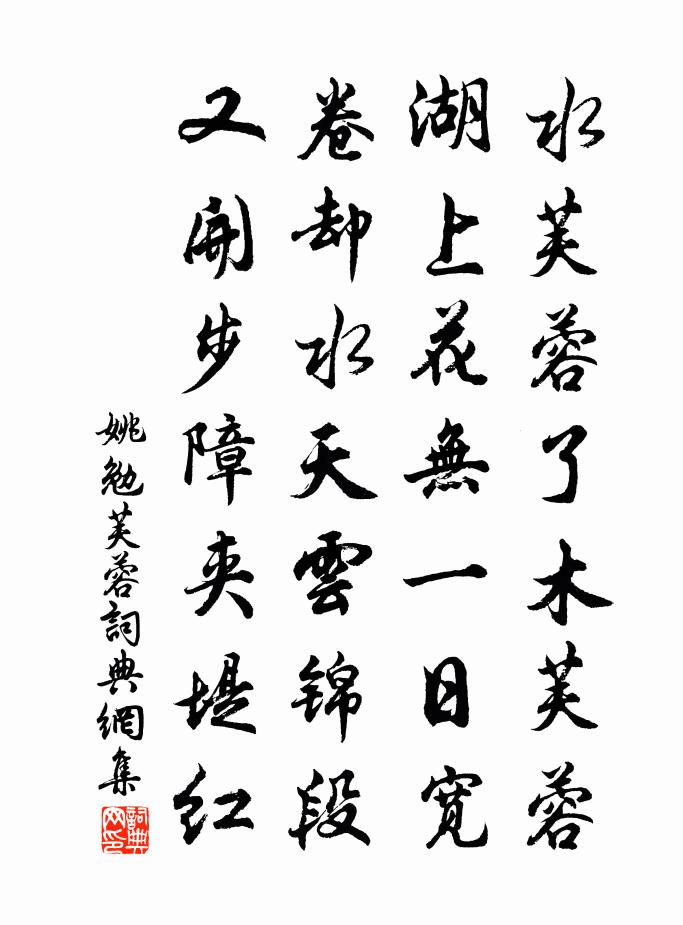 水芙蓉了木芙蓉
湖上花無一日寬
卷却水天雲錦段
又開步障夹堤红
姚勉芙蓉詞典網集
詞典网印